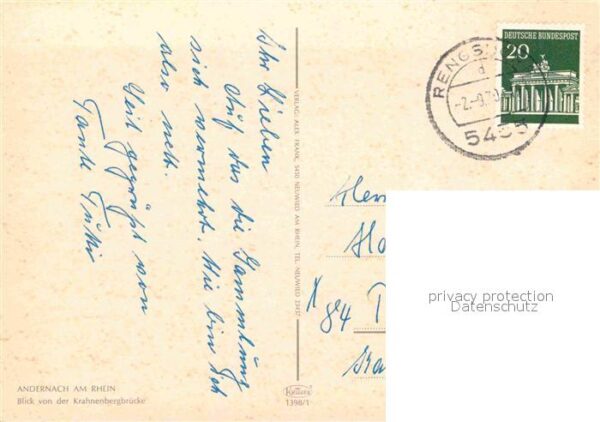 Ihr Lieben
Auf das die Sammlung
sich vermehrt. Wie bin ich
also nett.
Seit gegrüßt von
Tante
VERLAG: ALEX FRANK, 5450 NEUWIED AM RHEIN, TEL. NEUWIED
ANDERNACH AM RHEIN
Blick von der Krahnenbergbrücke
Kellers
1398/1
DEUTSCHE BUNDESPOST
20
RENGS
d
-2.-9.70
5455
84
privacy protection
Datenschutz